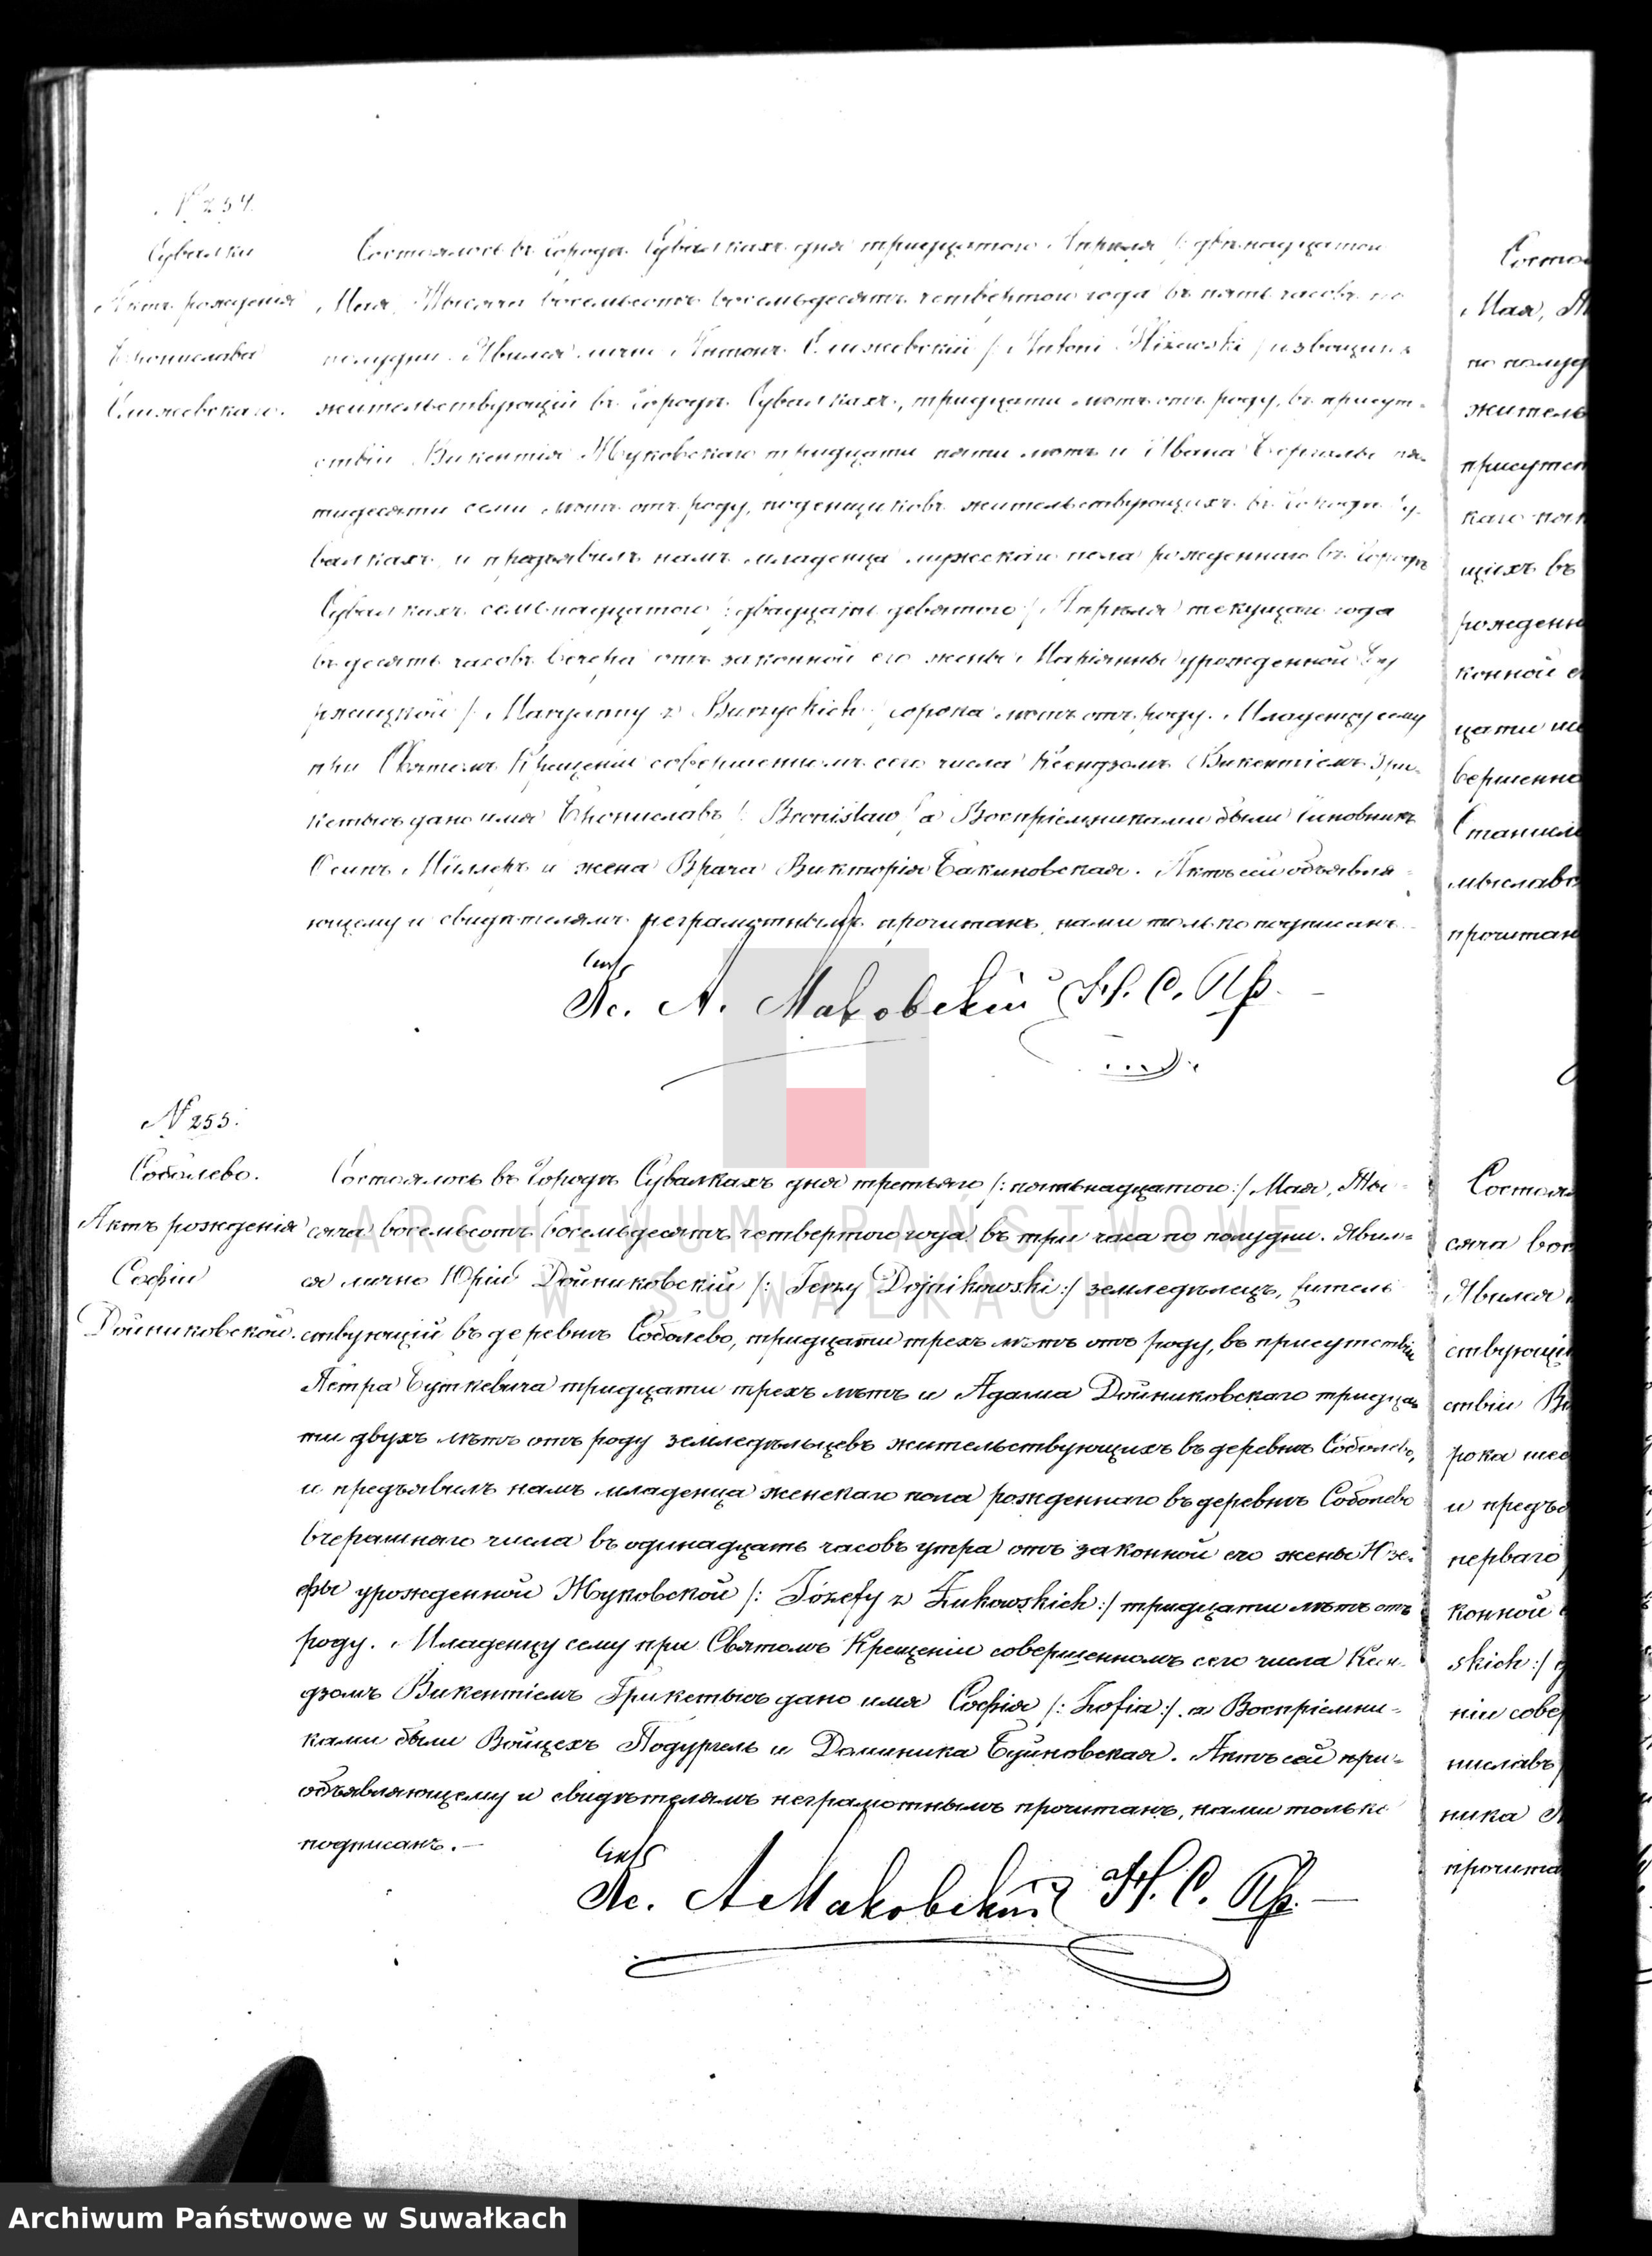 № 254.
Сувалки
Актъ рожденія
Бронислава
Состоялось въ Городѣ Сувалкахъ дня тридцатаго Апрѣля /: двѣнадцатаго
Мая, Тысяча восемьсотъ восемьдесятъ четвертого года въ пять часовъ по
полудни. Явился лично Антонъ /: Antoni извощикъ
жительствующій въ Городѣ Сувалкахъ, тридцати лѣтъ отъ роду, въ присут-
ствіи Викентія Жуковскаго тридцати пяти лѣтъ и Ивана пя-
тидесяти семи лѣтъ отъ роду, поденщиковъ жительствующихъ въ Городѣ Су-
валкахъ и предъявилъ намъ младенца мужескаго пола рожденнаго въ Городѣ
Сувалкахъ семьнадцатаго /: двадцать девятого :/ Апрѣля текущаго года
въ десять часовъ вечера отъ законной его жены Маріянны урожденной
/: Maryanny z сорока лѣтъ отъ роду. Младенцу сему
при Святомъ Крещеніи совершенномъ сего числа Ксендзомъ Викентіемъ Гри-
кетысъ дано имя Брониславъ /: Bronisław :/ а Воспріемниками были Чиновникъ
Осипъ Миллеръ и жена Врача Викторія Бакиновская. Актъ сей объявля-
ющему и свидѣтелямъ неграмотнымъ прочитанъ, нами только подписанъ.
Кс. А. Маковскій Н. С. Пр.
№ 255.
Соболево.
Актъ рожденія
Софіи
Дойниковской.
Состоялось въ Городѣ Сувалкахъ дня третьяго /: пятьнадцатого :/ Мая, Ты-
сяча восемьсотъ восемьдесятъ четвертого года въ три часа по полудни. Явил-
ся лично Юрій Дойниковскій /: Jerzy Dojnikowski :/ земледѣлецъ, житель-
ствующій въ деревнѣ Соболево, тридцати трехъ лѣтъ отъ роду, въ присутствіи
Петра Буткевича тридцати трехъ лѣтъ и Адама Дойниковскаго тридца-
ти двухъ лѣтъ отъ роду земледѣльцевъ жительствующихъ въ деревнѣ Соболево,
и предъявилъ намъ младенца женскаго пола рожденнаго въ деревнѣ Соболево
вчерашняго числа въ одинадцать часовъ утра отъ законной его жены Юзе-
фы урожденной Жуковской /: Józefy z Żukowskich :/ тридцати лѣтъ отъ
роду. Младенцу сему при Святомъ Крещеніи совершенномъ сего числа Ксен-
дзомъ Викентіемъ Грикетысъ дано имя Софія /: Zofia :/ а Воспріемни-
ками были Войцехъ Подургель и Доминика Буйновская. Актъ сей при-
объявляющему и свидѣтелямъ неграмотнымъ прочитанъ, нами только
подписанъ. —
Кс. А Маковскій Н. С. Пр. —
Мая,
по полуд
житель
присутст
щихъ въ
рожденн
конной е
вершенно
Станисл
прочитан
сяча вос
Явился
ствующі
ствіи
рока шес
и предъя
перваго
конной
skich :/
ніи сове
ниславъ
ника
прочита
ARCHIWUM PAŃSTWOWE
W SUWAŁKACH
Archiwum Państwowe w Suwałkach